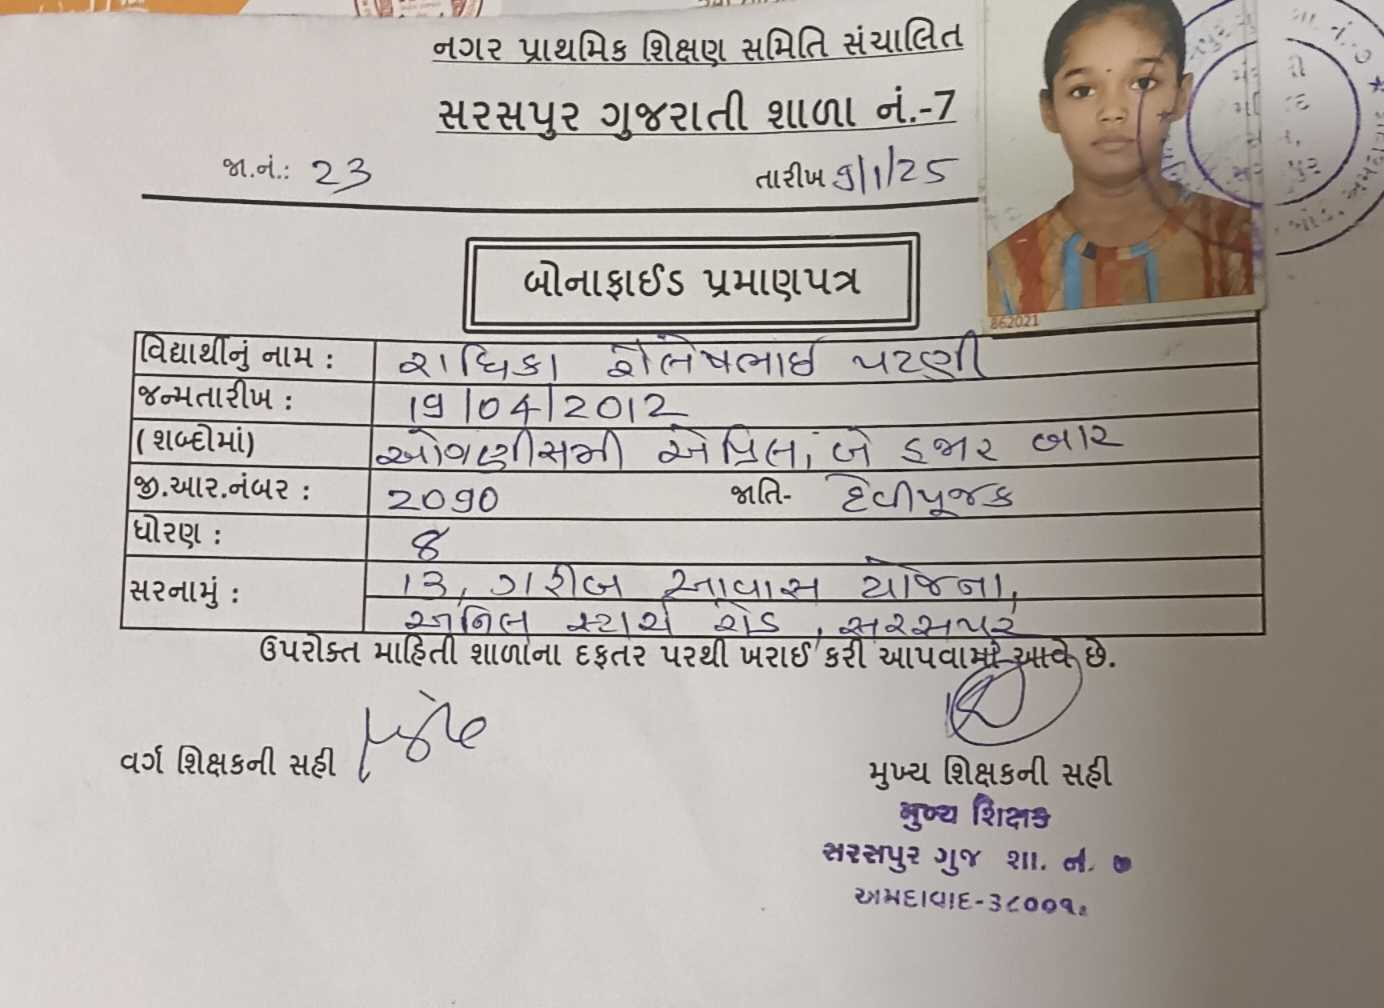 નગર પ્રાથમિક શિક્ષણ સમિતિ સંચાલિત
સરસપુર ગુજરાતી શાળા નં.-7
જા.નં.: 23 તારીખ ૭/1/25
862021
બોનાફાઈડ પ્રમાણપત્ર
વિદ્યાર્થીનું નામ : રાધિકા શૈલેષભાઈ પટણી
જન્મતારીખ : 19/04/2012
(શબ્દોમાં) ઓગણીસમી એપ્રિલ, બે હજાર બાર
જી.આર.નંબર : 20૭0 જાતિ- દેવીપૂજક
ધોરણ : 8
સરનામું : 13, ગરીબ આવાસ યોજના,
અનિલ સ્ટાર્ચ રોડ, સરસપુર
ઉપરોક્ત માહિતી શાળાના દફતર પરથી ખરાઈ કરી આપવામાં આવે છે.
વર્ગ શિક્ષકની સહી
મુખ્ય શિક્ષકની સહી
મુખ્ય શિક્ષક
સરસપુર ગુજ શા. નં. ૭
અમદાવાદ-૩૮૦૦૧૮